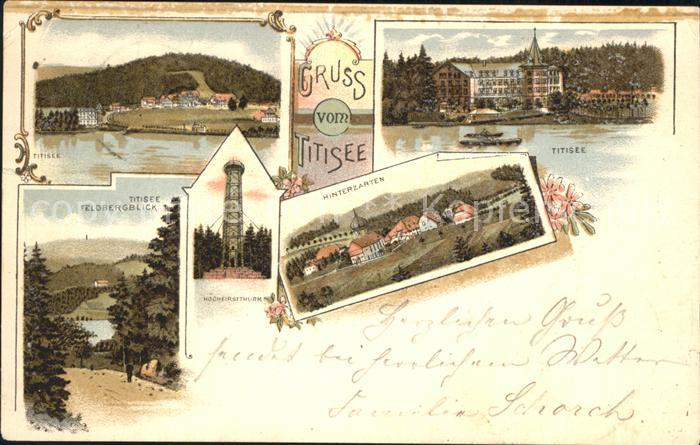 GRUSS
VOM
TITISEE
TITISEE
TITISEE
TITISEE
FELDBERGBLICK
HOCHFIRSTTHURM
HINTERZARTEN
Herzlichen Gruß
sendet bei herrlichem Wetter
Familie Schorch.